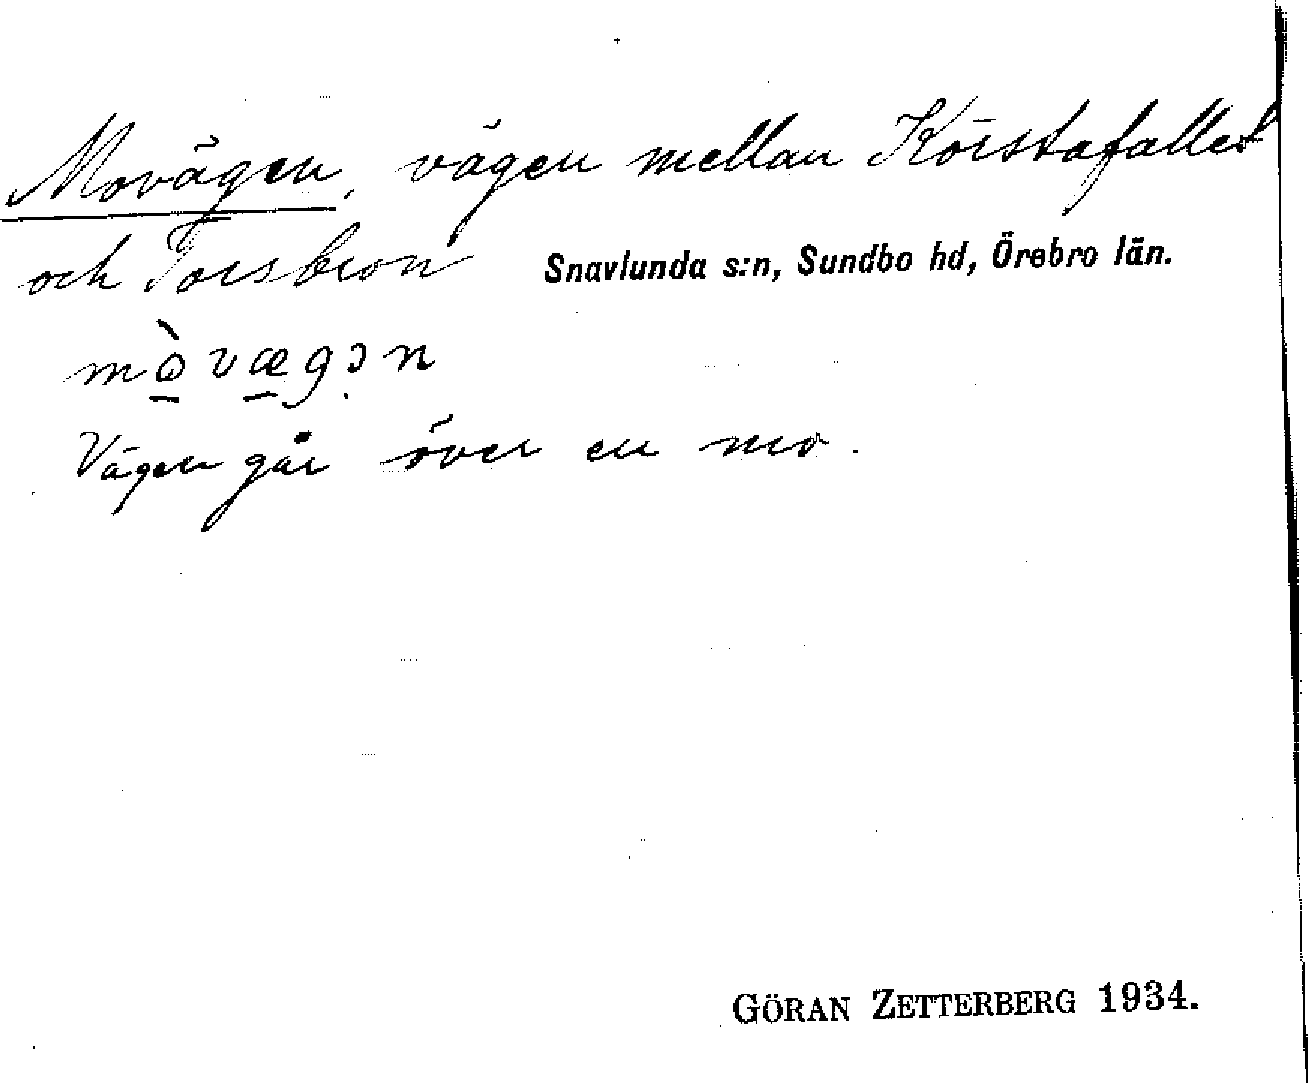 Movägen, vägen mellan Körstafallet
och Torsbron Snavlunda s:n, Sundbo hd, Örebro län.
mò̲væ̲gən
Vägen går över en mo.
GÖRAN ZETTERBERG 1934.